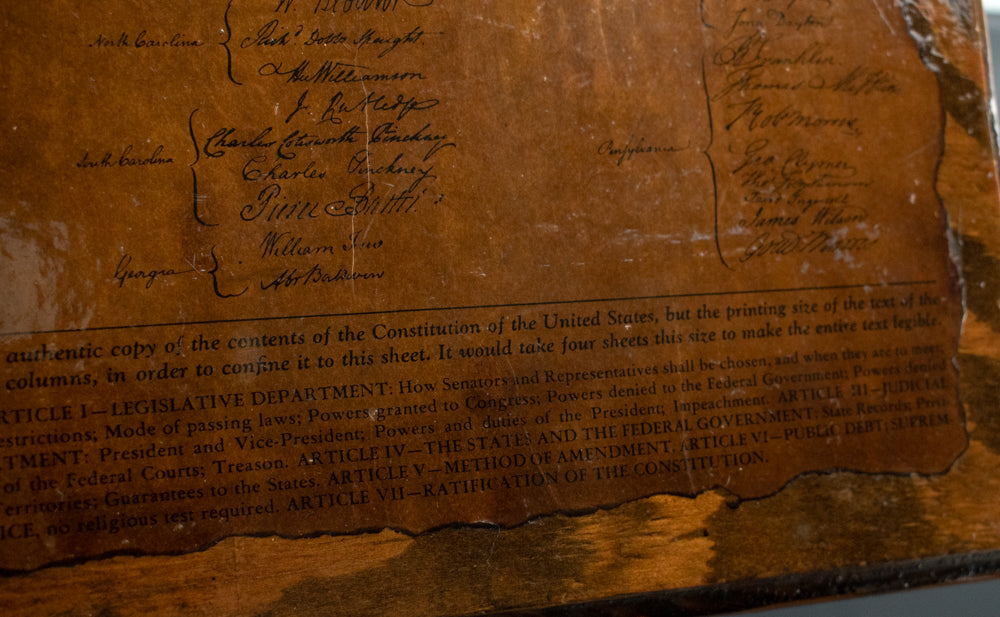 North Carolina
Rich.d Dobbs Spaight.
Hu Williamson
South Carolina
J. Rutledge
Charles Cotesworth Pinckney
Charles Pinckney
Pierce Butler.
Georgia
William Few
Abr Baldwin
Jona Dayton
Pensylvania
B Franklin
Thomas Mifflin
Rob Morris
Geo. Clymer
James Wilson
Gouv Morris
authentic copy of the contents of the Constitution of the United States, but the printing size of the text of the
columns, in order to confine it to this sheet. It would take four sheets this size to make the entire text legible.
ARTICLE I—LEGISLATIVE DEPARTMENT: How Senators and Representatives shall be chosen, and when they are to meet;
estrictions; Mode of passing laws; Powers granted to Congress; Powers denied to the Federal Government; Powers denied
RTMENT: President and Vice-President; Powers and duties of the President; Impeachment. ARTICLE III—JUDICIAL
of the Federal Courts; Treason. ARTICLE IV—THE STATES AND THE FEDERAL GOVERNMENT: State Records; Privi
Territories; Guarantees to the States. ARTICLE V—METHOD OF AMENDMENT. ARTICLE VI—PUBLIC DEBT; SUPREM-
ICE, no religious test required. ARTICLE VII—RATIFICATION OF THE CONSTITUTION.